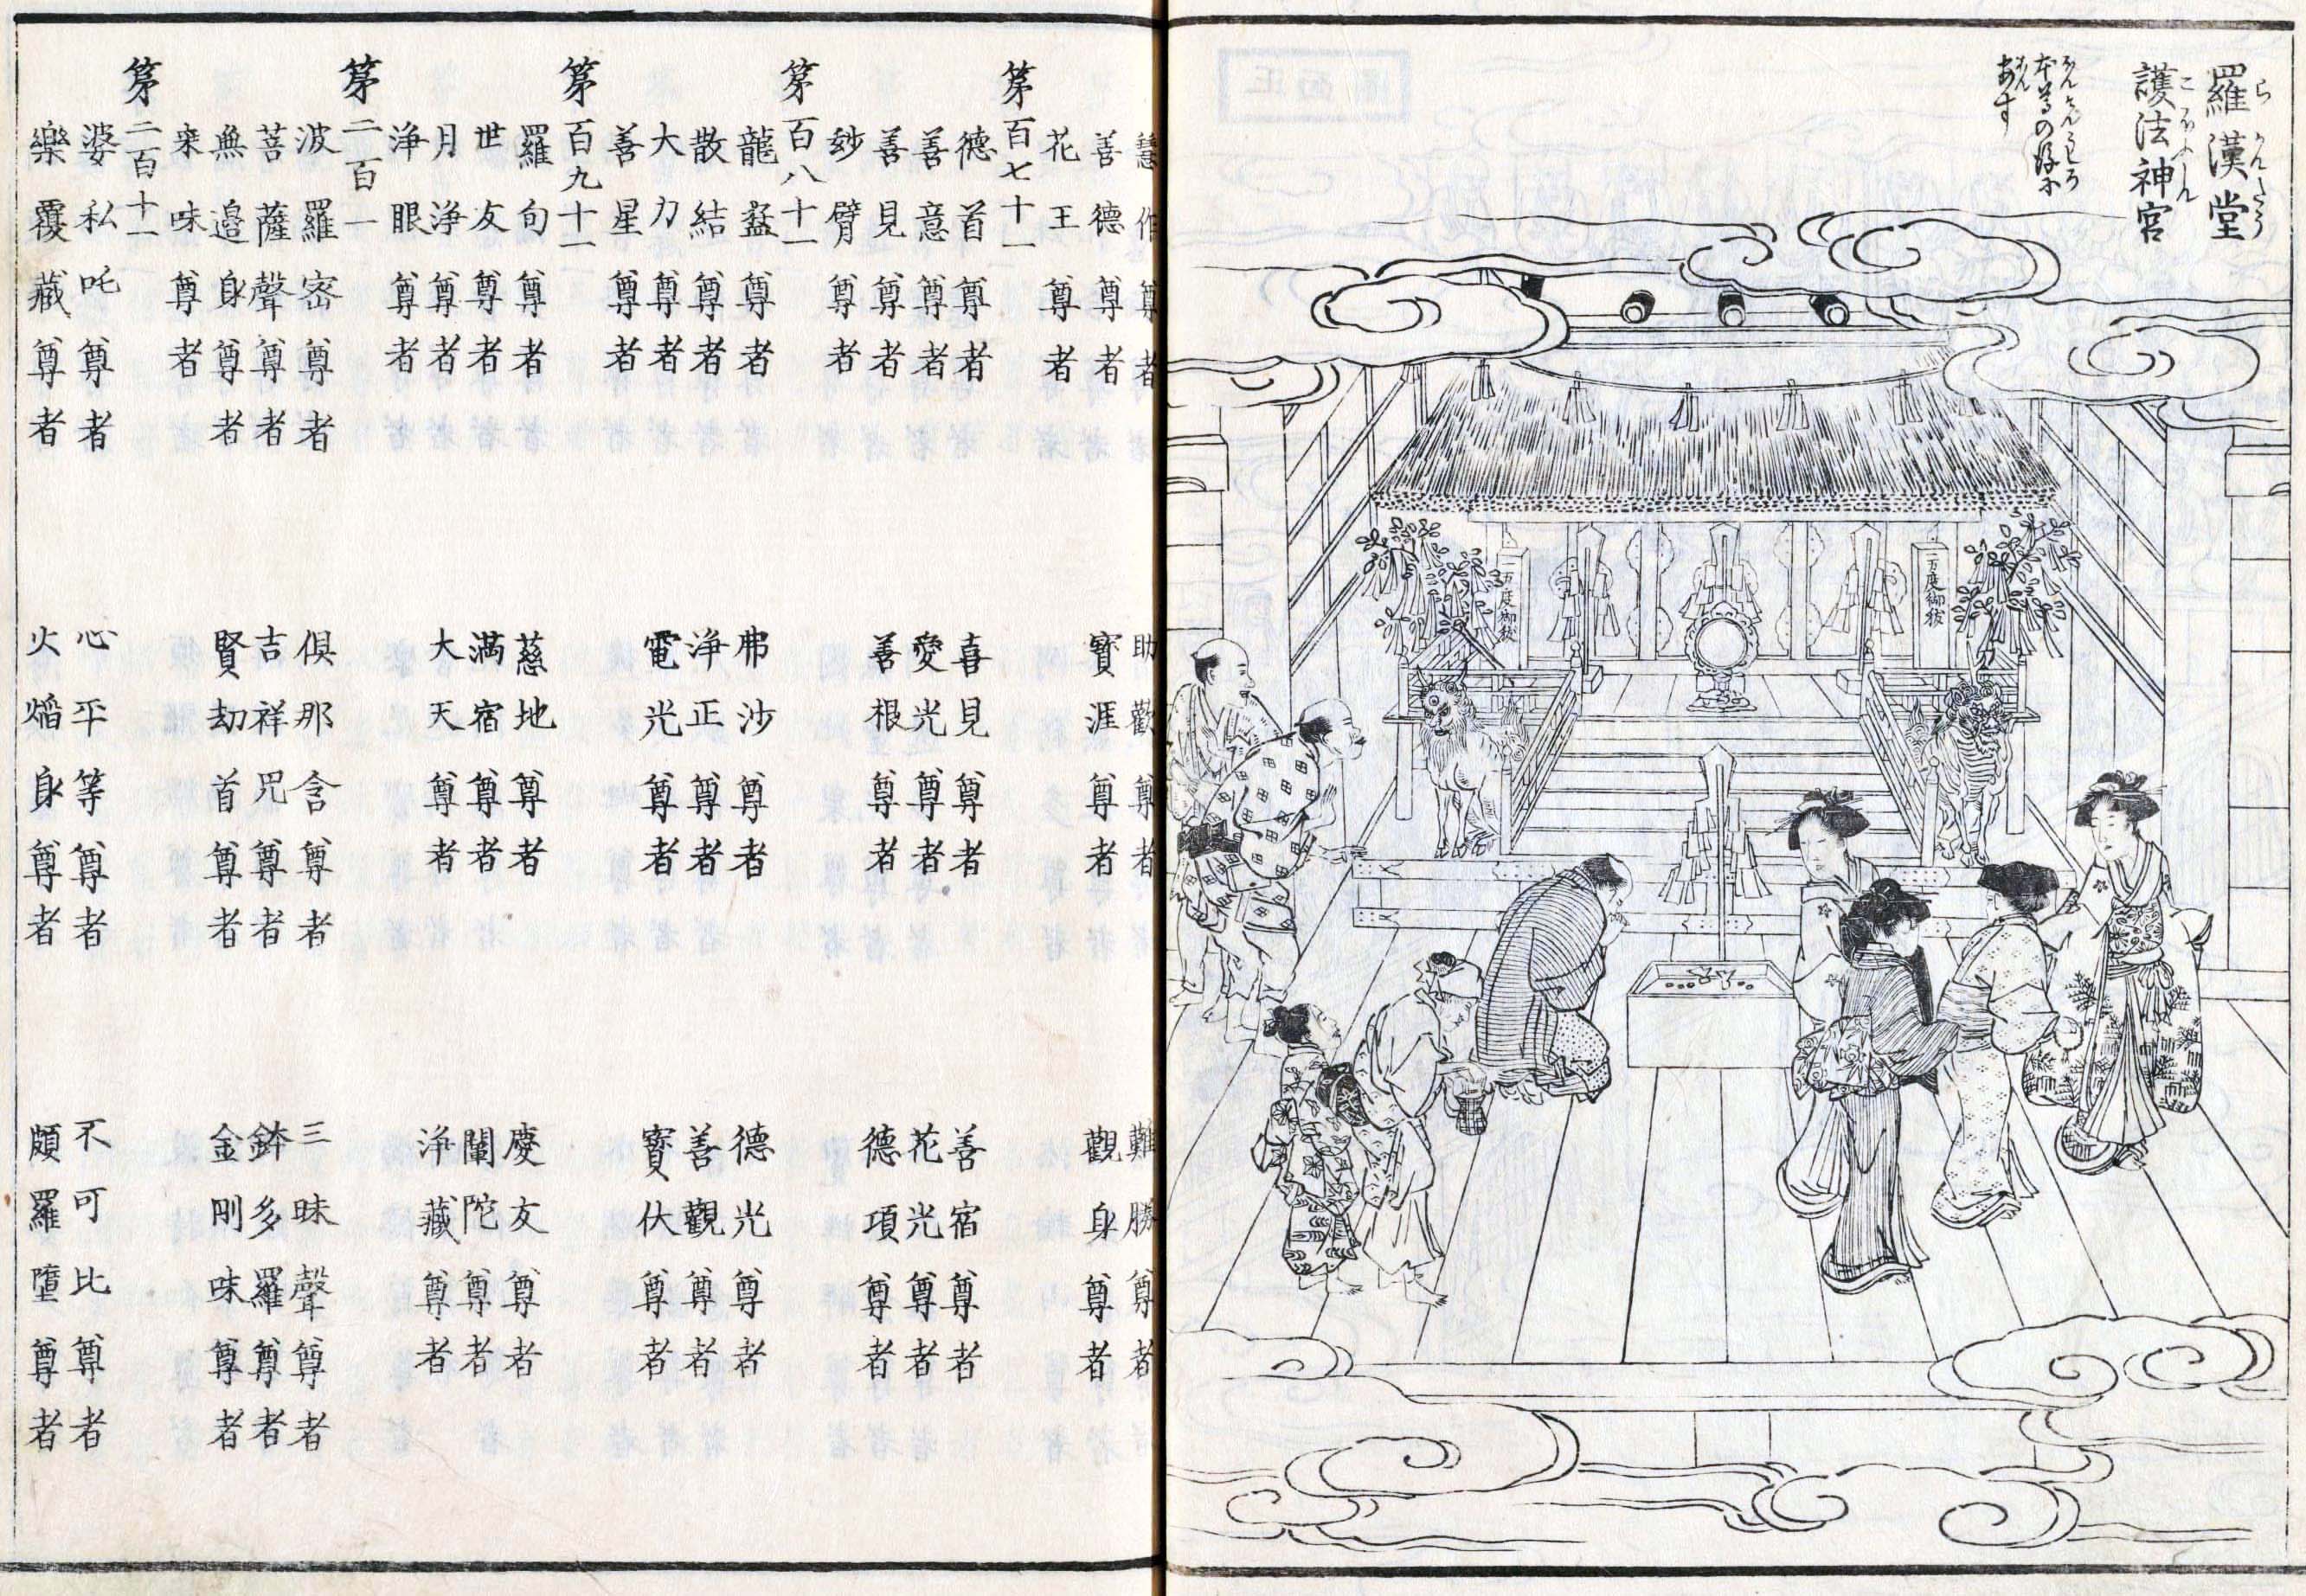 羅漢堂
らかんだう
護法神宮
ごほふじん
本尊の後に
一万度御祓
一万度御祓
慧作尊者　助歡尊者　難勝尊者
善德尊者　寳涯尊者　觀身尊者
花王尊者
苐百七十一
德首尊者　喜見尊者　善宿尊者
善意尊者　愛光尊者　花光尊者
善見尊者　善根尊者　德項尊者
玅臂尊者
苐百八十一
龍盇尊者　弗沙尊者　德光尊者
散結尊者　浄正尊者　善觀尊者
大力尊者　電光尊者　寳伏尊者
善星尊者
苐百九十一
羅旬尊者　慈地尊者　慶友尊者
世友尊者　満宿尊者　闡陀尊者
月浄尊者　大天尊者　浄藏尊者
浄眼尊者
苐二百一
波羅密尊者　俱那含尊者　三昧聲尊者
菩薩聲尊者　吉祥咒尊者　鉢多羅尊者
無邉身尊者　賢劫首尊者　金剛味尊者
乗味尊者
苐二百十一
婆私吒尊者　心平等尊者　不可比尊者
樂覆藏尊者　火焔身尊者　頗羅墮尊者